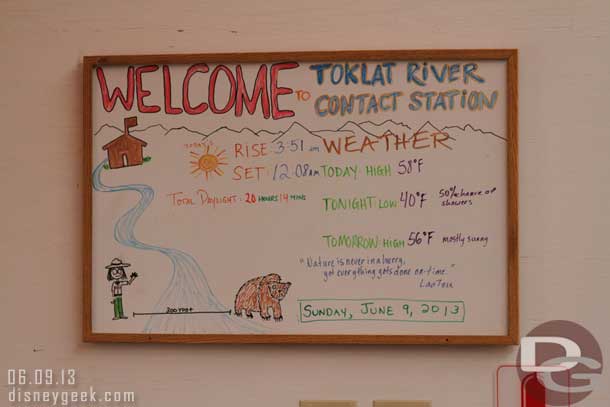 WELCOME TO TOKLAT RIVER
CONTACT STATION
TODAY
RISE: 3:51 am
SET: 12:08 am
TOTAL DAYLIGHT: 20 HOURS 14 MINS
WEATHER
TODAY: HIGH 58°F
TONIGHT: LOW 40°F 50% chance of
showers
TOMORROW: HIGH 56°F mostly sunny
"Nature is never in a hurry,
yet everything gets done on-time."
Lao Tzu
300 YDS+
SUNDAY, JUNE 9, 2013
06.09.13
disneygeek.com
DG